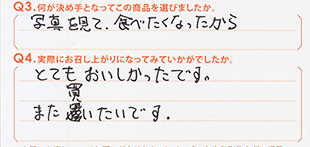 Q3.何が決め手となってこの商品を選びましたか。
写真を見て、食べたくなったから
Q4.実際にお召し上がりになってみていかがでしたか。
とてもおいしかったです。
また買いたいです.